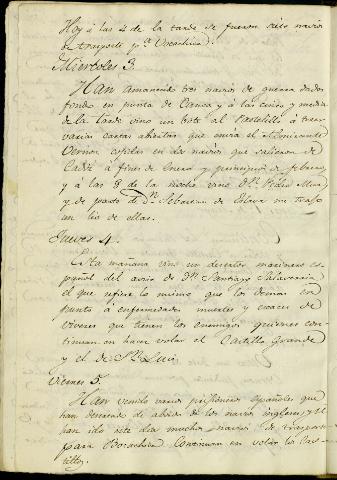 Hoy á las 4 de la tarde se fueron siete navios
de trasporte p.ª Bocachica.
Miercoles 3.
Han amanecido tres navios de guerra dados
fondo en punta de Canoa y á las cinco y media
de la tarde vino un bote al Pastelillo á traer
varias cartas abiertas que envia el Almirante
Vernon cogidas en dos navios que salieron de
Cadiz á fines de Enero y principios de febrero
y á las 8 de la noche vino D.n Pedro Mur
y de parte de D.n Sebastian de Eslava me trajo
un lio de ellas.
Jueves 4.
Esta mañana vino un desertor marinero es-
pañol del avio de D.n Santiago Salaverria
el que refiere lo mismo que los demas en
punto á enfermedades muertes y escacez de
viveres que tienen los enemigos quienes con-
tinuan en hacer volar el Castillo Grande
y el de S.n Luis.
Viernes 5.
Han venido varios prisioneros españoles que
han desertado de abordo de los navios ingleses, y se
han ido este dia muchos navios de trasporte
para Bocachica. Continuan en volar los Cas-
tillos.